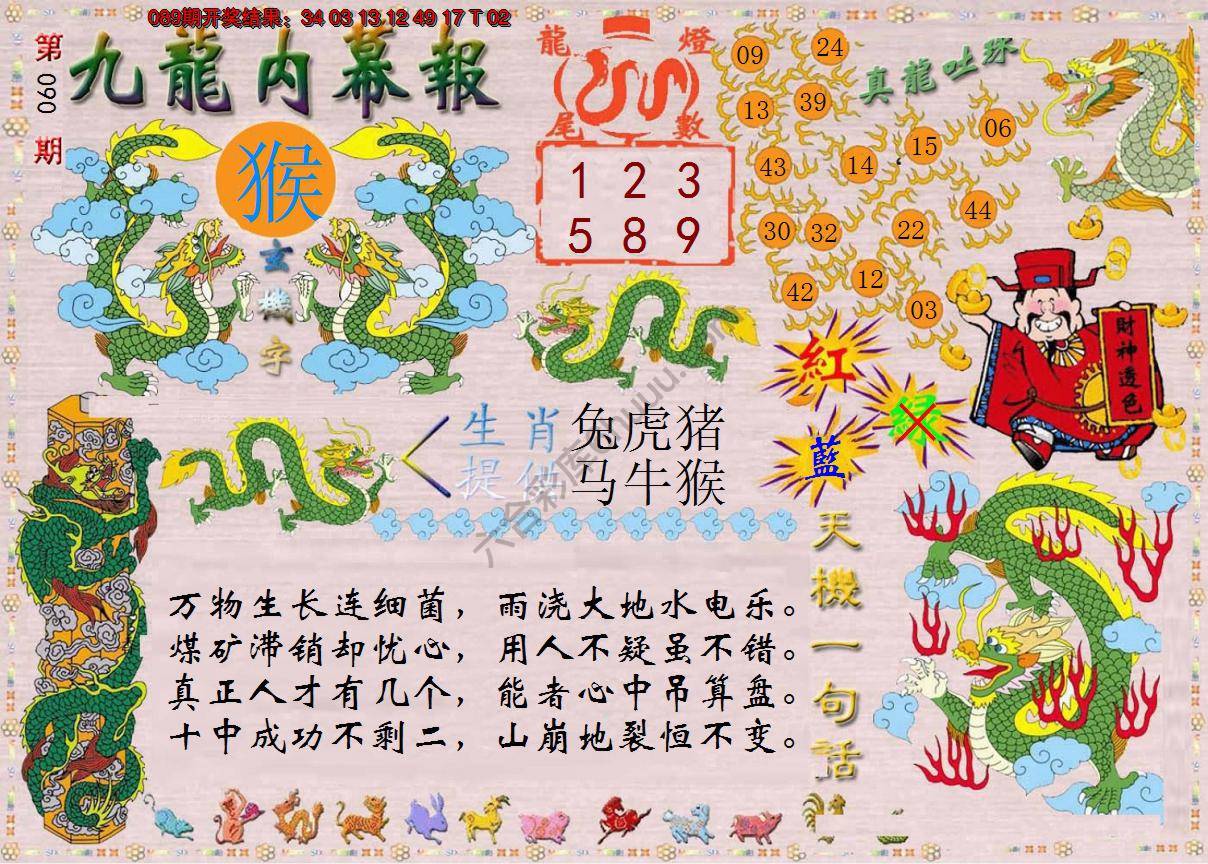 089期开奖结果：34 03 13 12 49 17 T 02
第090期
九龍内幕報
猴
玄機字
龍燈
尾數
1 2 3
5 8 9
真龍吐珠
09 24
13 39
43 14 15 06
30 32 22 44
42 12 03
財神透色
紅
緑
藍
生肖 兔虎猪
提供 马牛猴
天機一句話
万物生长连细菌，雨浇大地水电乐。
煤矿滞销却忧心，用人不疑虽不错。
真正人才有几个，能者心中吊算盘。
十中成功不剩二，山崩地裂恒不变。